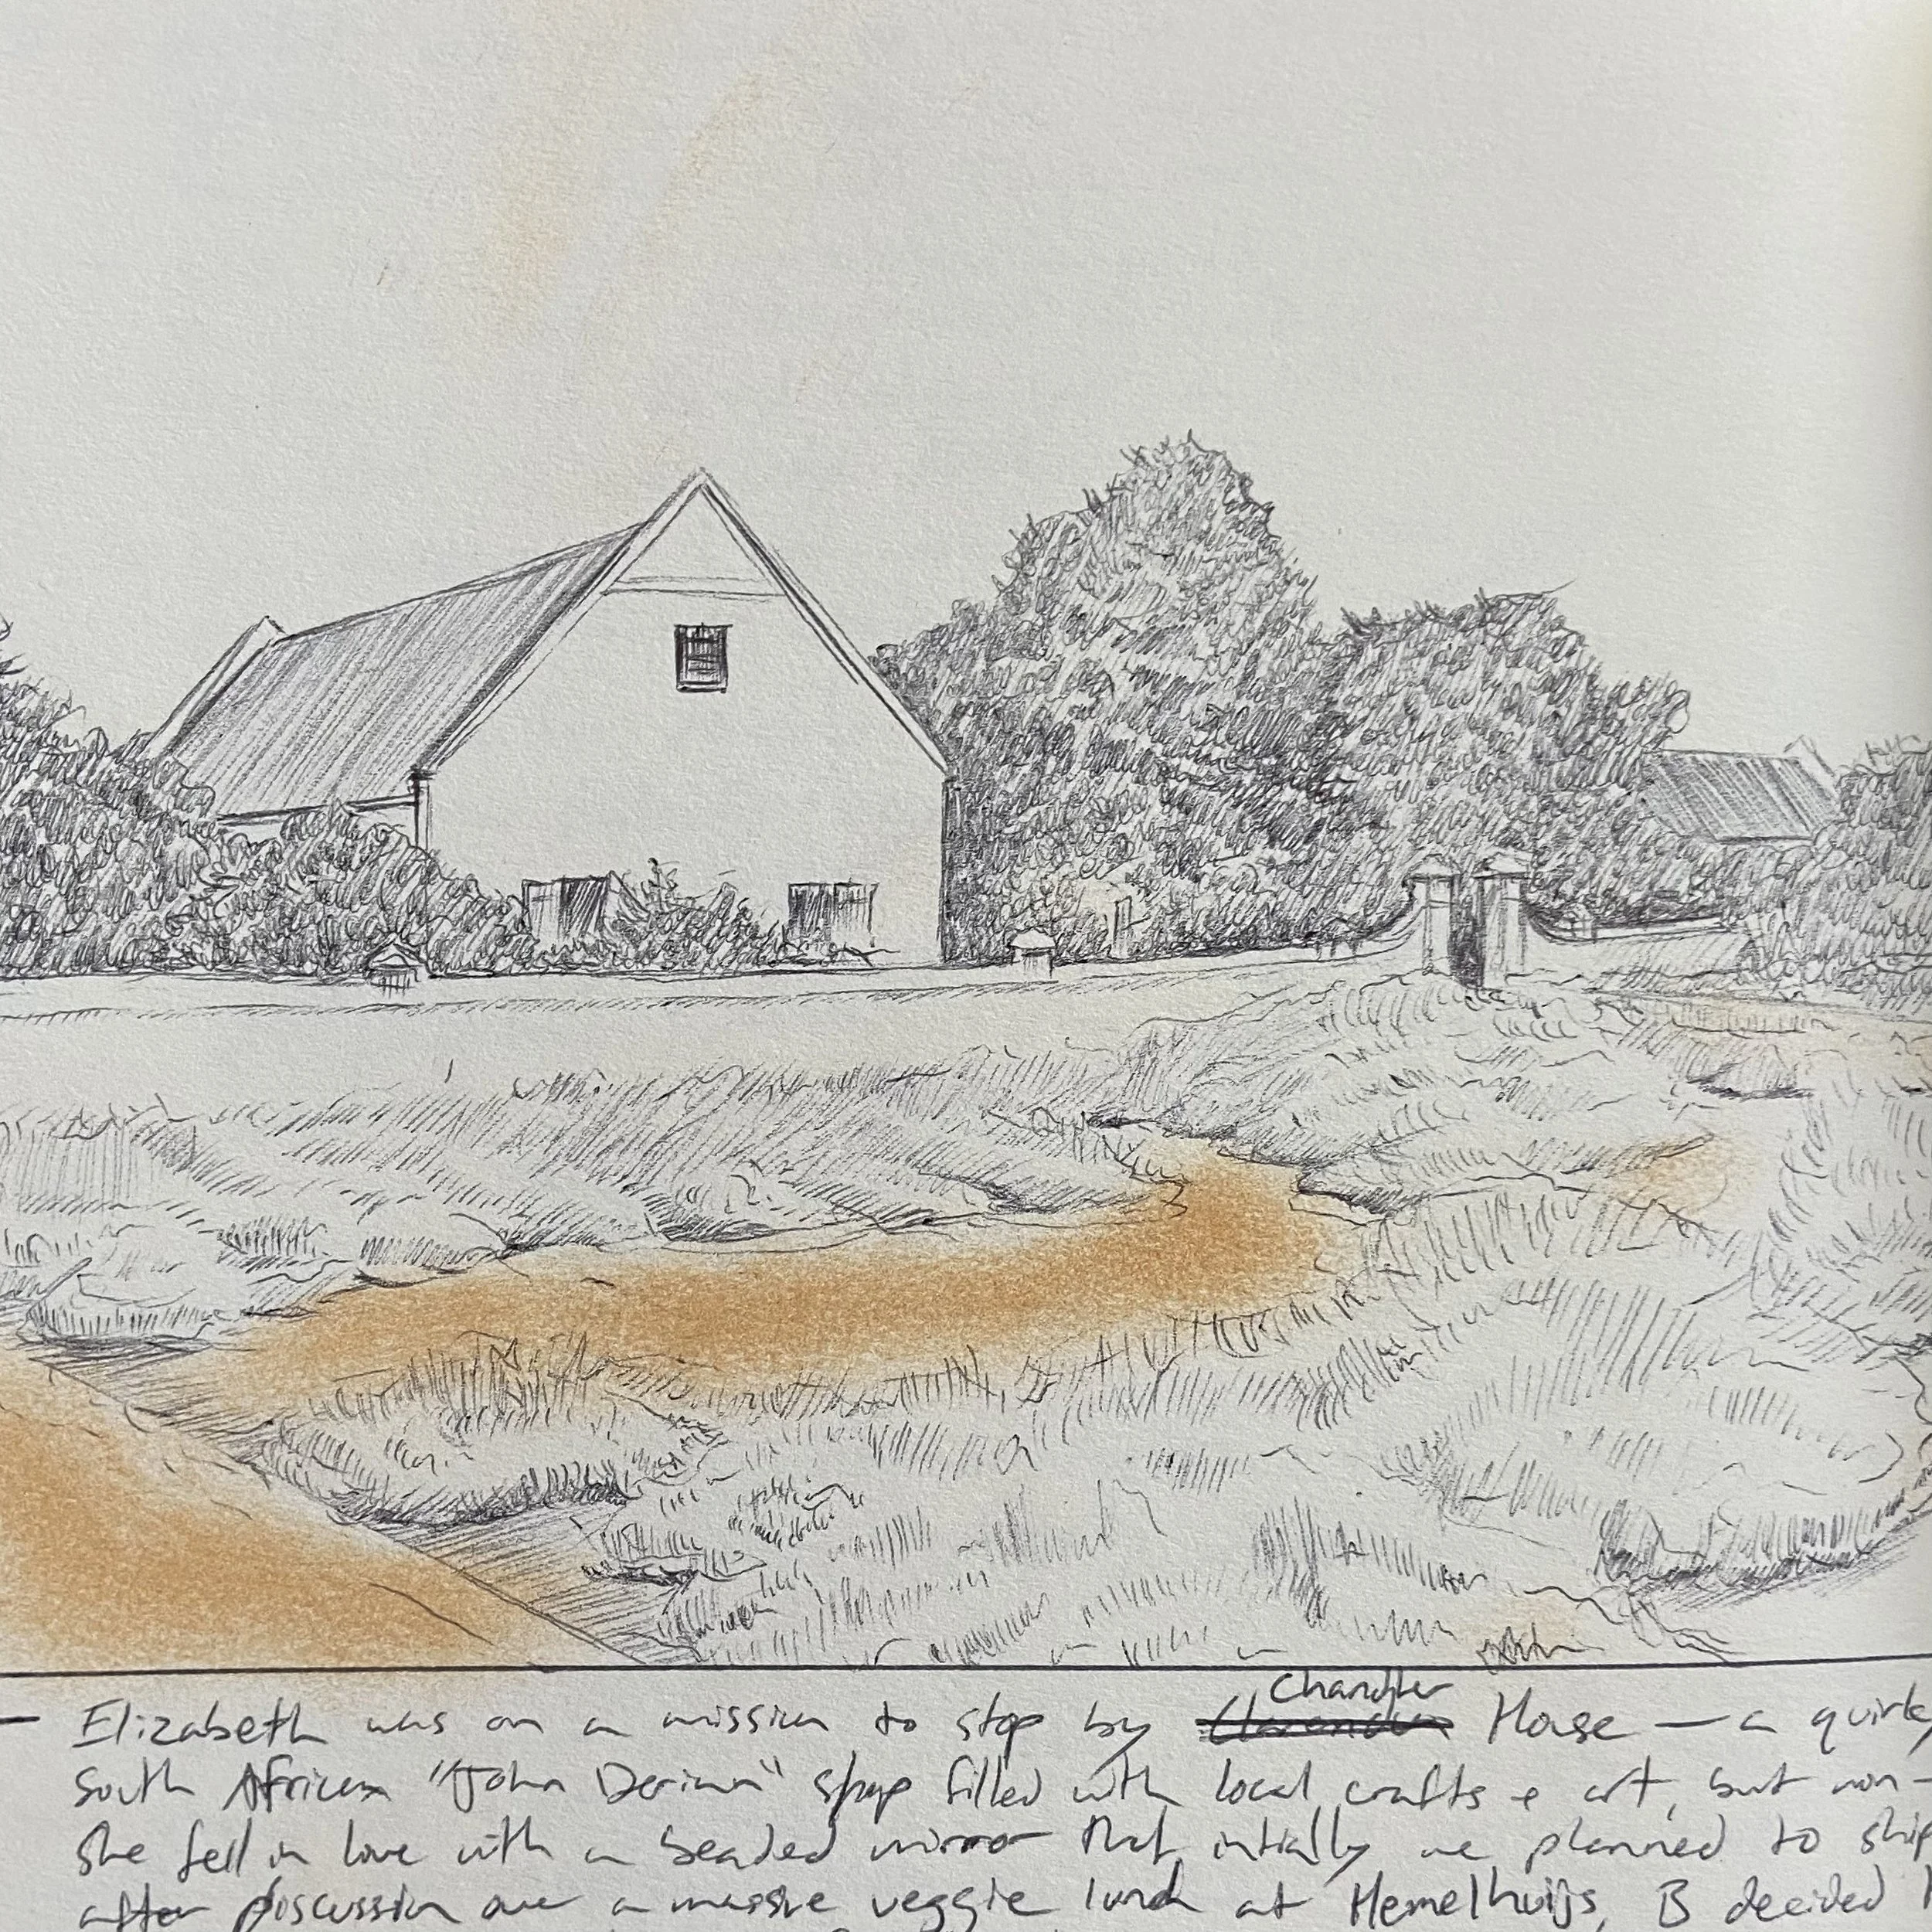 Chandler
— Elizabeth was on a mission to stop by House — a quirk
South African "John Derian" shop filled with local crafts + art, but non-
She fell in love with a beaded mirror that initially we planned to ship
after discussion over a massive veggie lunch at Hemelhuijs, B decided